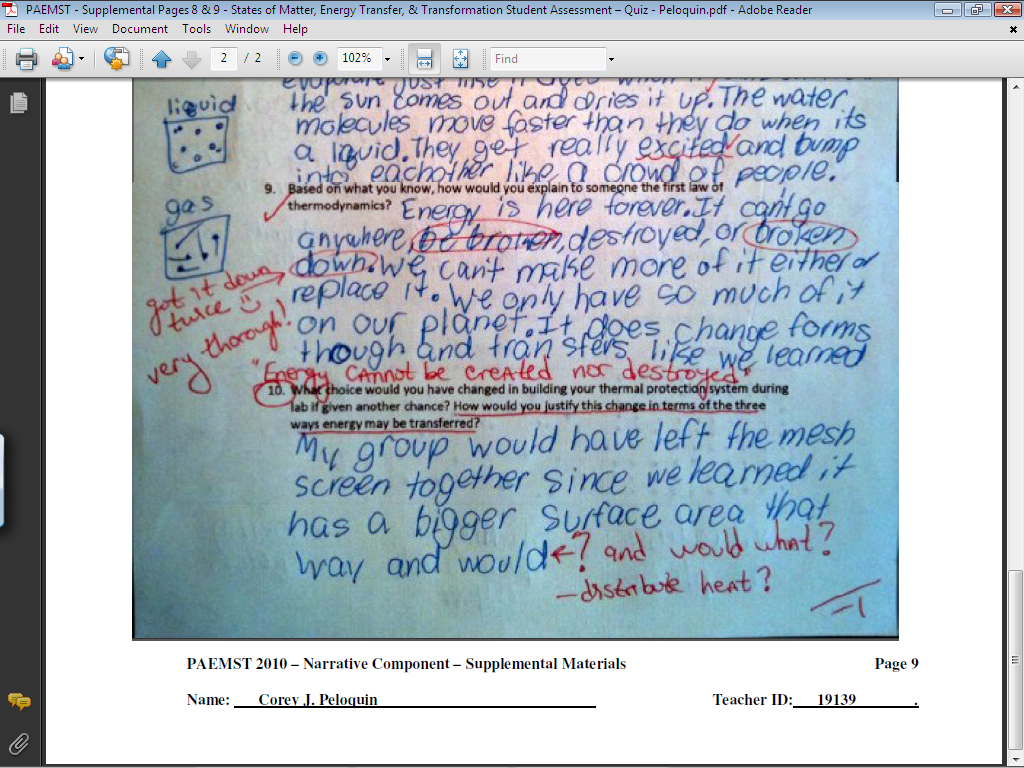 PAEMST - Supplemental Pages 8 & 9 - States of Matter, Energy Transfer, & Transformation Student Assessment – Quiz - Peloquin.pdf - Adobe Reader
File Edit View Document Tools Window Help
2 / 2 102% Find
the sun comes out and dries it up. The water
liquid
molecules move faster than they do when its
a liquid. They get really excited and bump
into eachother like a crowd of people.
9. Based on what you know, how would you explain to someone the first law of
thermodynamics? Energy is here forever. It cant go
gas
anywhere, be broken, destroyed, or broken
down. We can't make more of it either or
got it down
twice
replace it. We only have so much of it
very thorough!
on our planet. It does change forms
though and transfers like we learned
"Energy CANnot be created nor destroyed"
10. What choice would you have changed in building your thermal protection system during
lab if given another chance? How would you justify this change in terms of the three
ways energy may be transferred?
My group would have left the mesh
screen together since we learned it
has a bigger surface area that
way and would ←? and would what?
- distribute heat?
-1
PAEMST 2010 – Narrative Component – Supplemental Materials Page 9
Name: Corey J. Peloquin Teacher ID: 19139 .